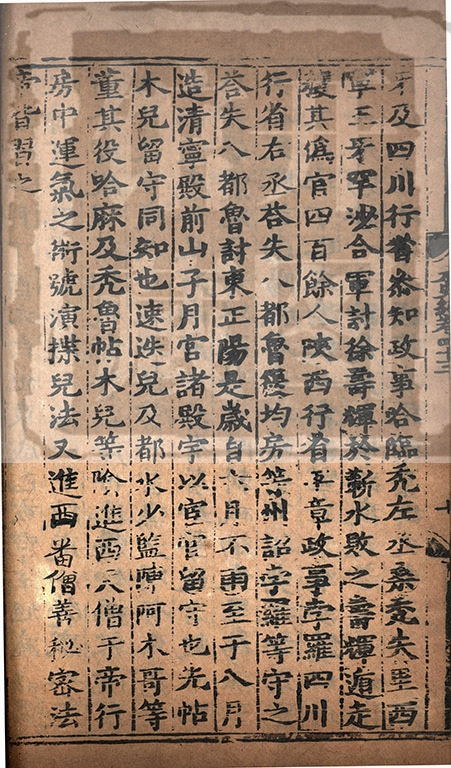 卷四十三
牙及四川行省叅知政事哈臨禿左丞桒禿失里西
寧王牙罕沙合軍討徐壽輝於蘄水敗之壽輝遁走
獲其僞官四百餘人陝西行省平章政事孛羅四川
行省右丞荅失八都魯復均房等州詔孛羅等守之
荅失八都魯討東正陽是歲自六月不雨至于八月
造清寧殿前山子月宮諸殿宇以宦官留守也先帖
木兒留守同知也速迭兒及都水少監陳阿木哥等
董其役哈麻及禿魯帖木兒等陰進西天僧于帝行
房中運氣之術號演揲兒法又進西番僧善秘密法
帝皆習之